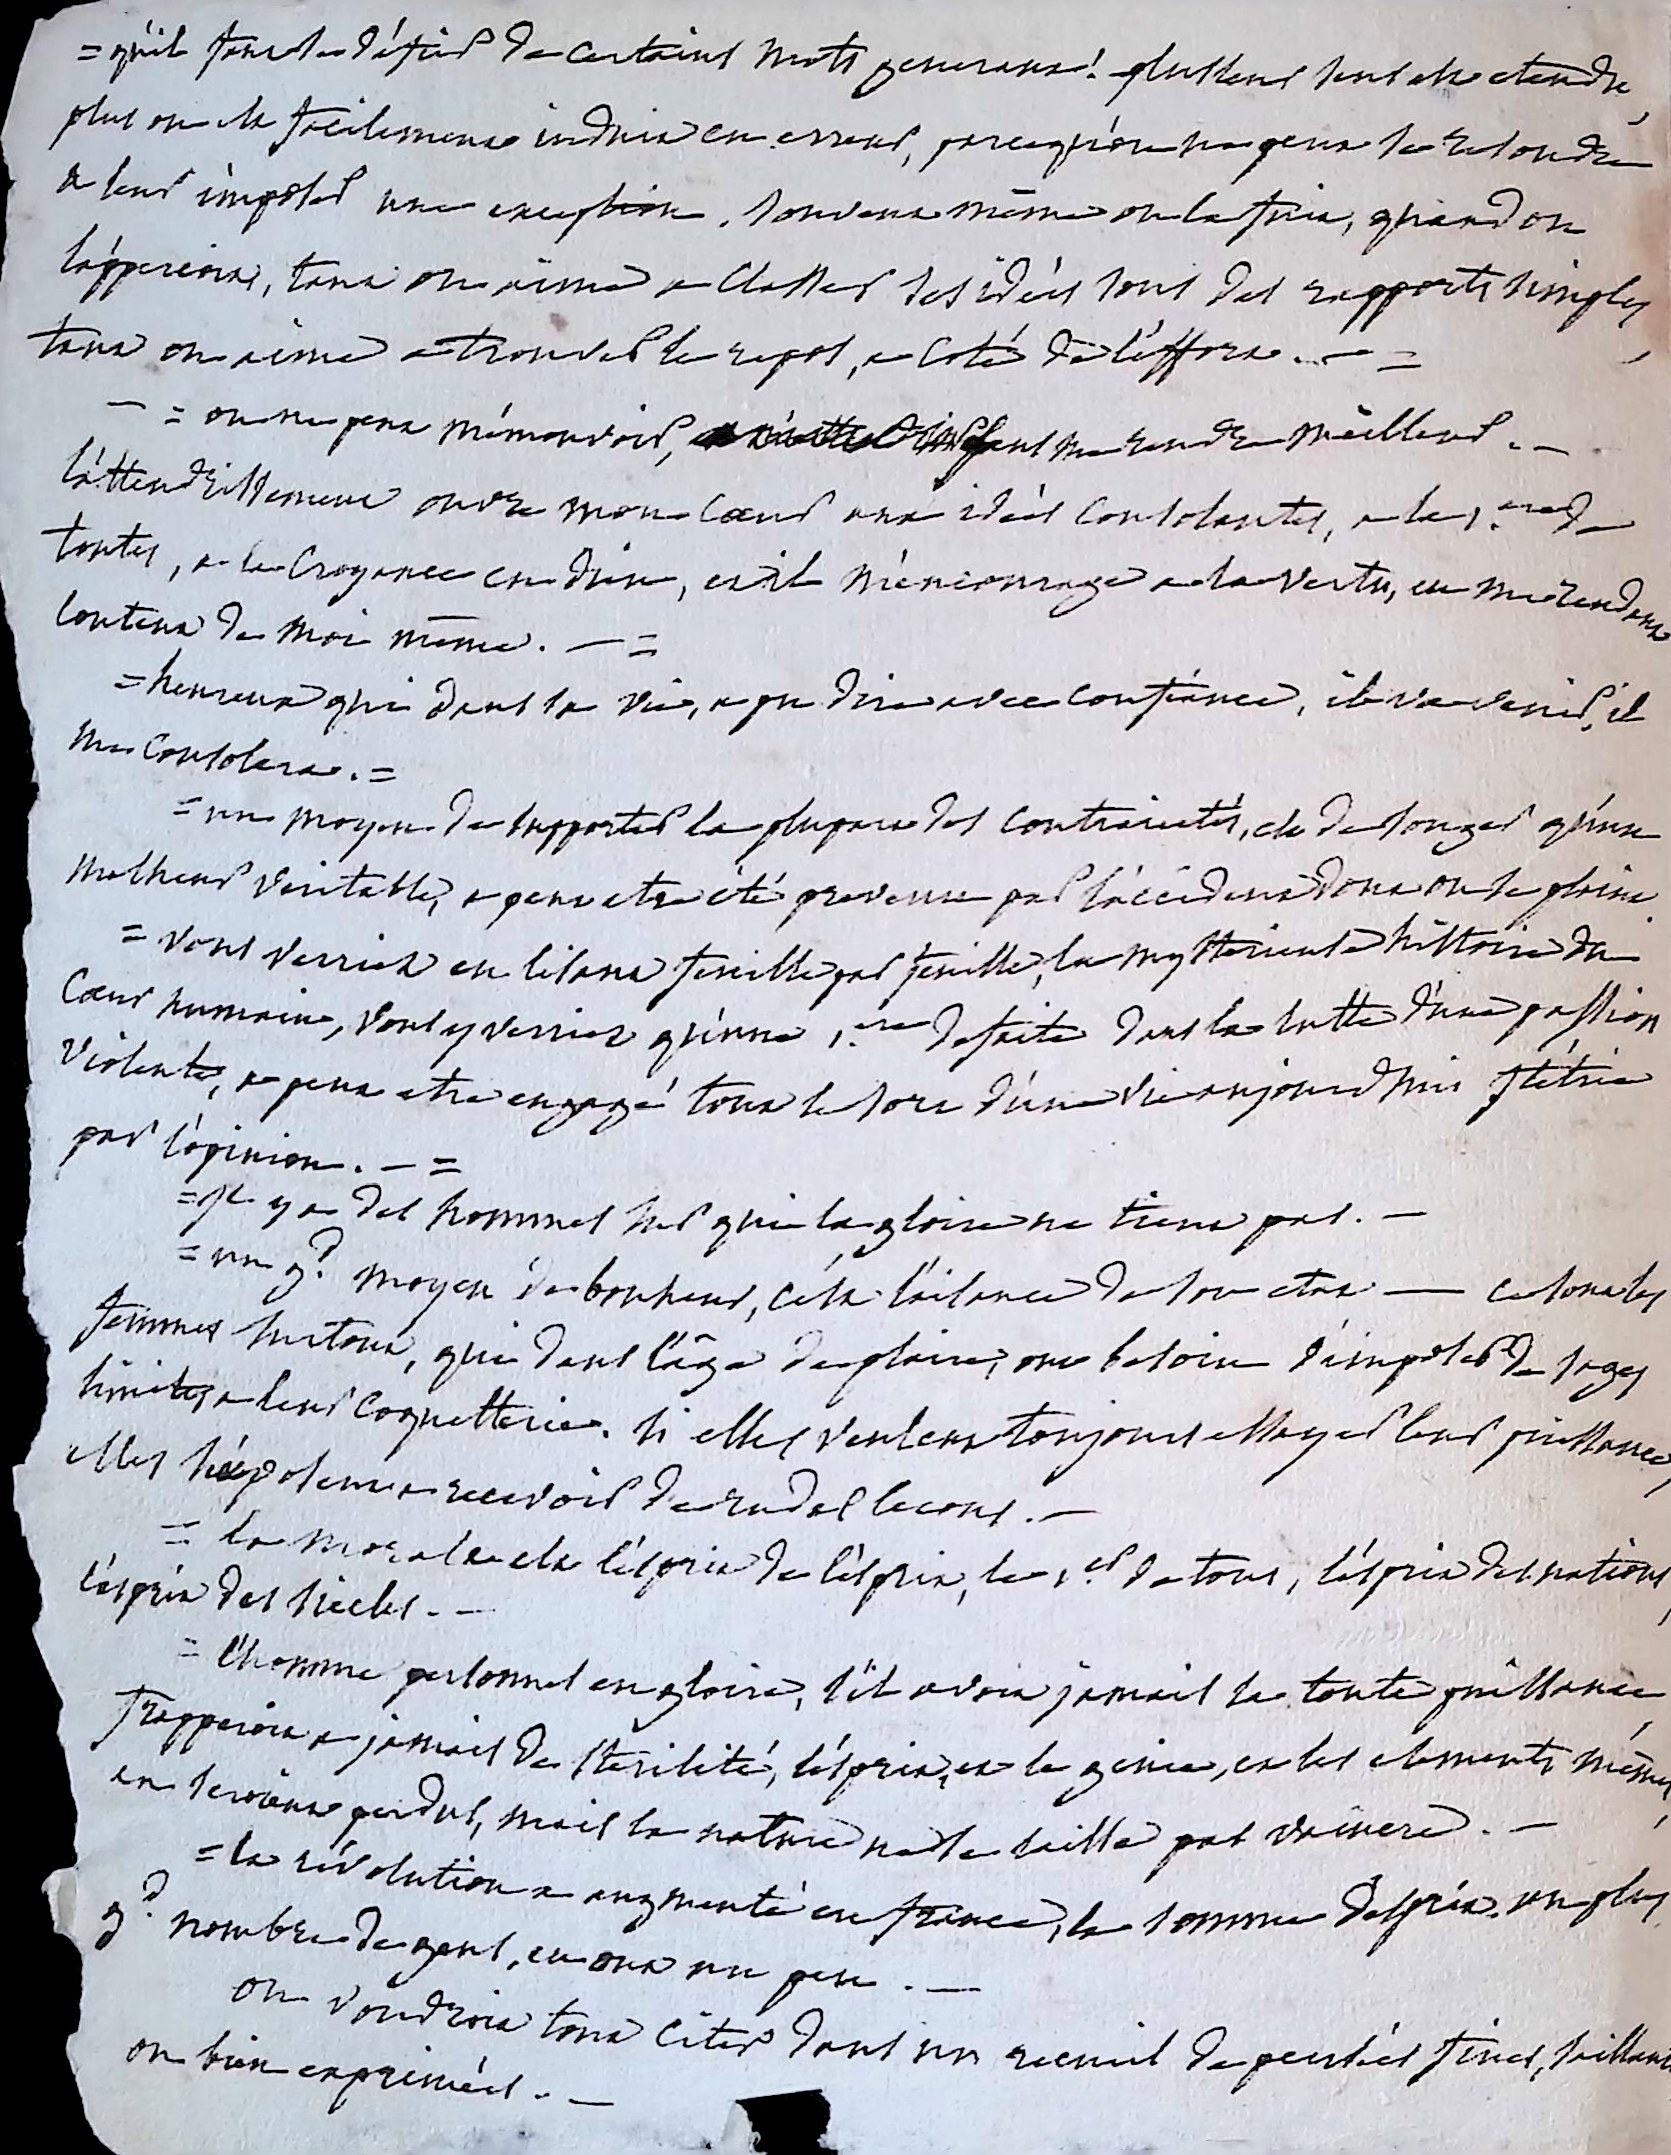 = qu'il faut se défier de certains mots generaux! plus leur sens est etendu,
plus on est facilement induit en erreur, parcequ'on ne peut se resoudre
a leur imposer une exception. souvent même on la fuit, quand on
l'apperçoit, tant on aime a classer ses idées sous des rapports simples,
tant on aime a trouver le repos, a coté de l'effort. — =
— = on ne peut m'émouvoir, sans me rendre meilleur. —
l'attendrissement ouvre mon cœur aux idées consolantes, a la 1.ere de
toutes, a la croyance en dieu, et il m'encourage a la vertu, en me rendant
content de moi même. — =
= heureux qui dans sa vie, a pu dire avec confiance, il va venir, il
me consolera. =
= un moyen de supporter la plupart des contrariétés, est de songer qu'un
malheur veritable, a peut etre été prevenu par l'accident dont on se plaint.
= vous verriez en lisant feuille par feuille, la mysterieuse histoire du
cœur humain, vous y verriez qu'une 1.ere defaite dans la lutte d'une passion
violente, a peut etre engagé tout le sort d'une vie aujourd'hui flétrie
par l'opinion. — =
= il y a des hommes sur qui la gloire ne tient pas. —
= un g.d moyen de bonheur, c'est l'aisance de son etat — ce sont les
femmes surtout, qui dans l'âge de plaire, ont besoin d'imposer de sages
limites a leur coquetterie. si elles veulent toujours essayer leur puissance,
elles s'exposent a recevoir de rudes lecons. —
= la morale est l'esprit de l'esprit, le 1.er de tous, l'esprit des nations,
l'esprit des siecles. —
= l'homme personnel en gloire, s'il avoit jamais la toute puissance,
frapperoit a jamais de sterilité, l'esprit, et le genie, et les elements mêmes,
en seroient perdus, mais la nature ne se laisse pas vaincre. —
= la révolution a augmenté en france, la somme d'esprit. un plus
g.d nombre de gens, en ont un peu. —
on voudroit tout citer dans un recueil de pensées fines, saillantes
ou bien exprimées. —